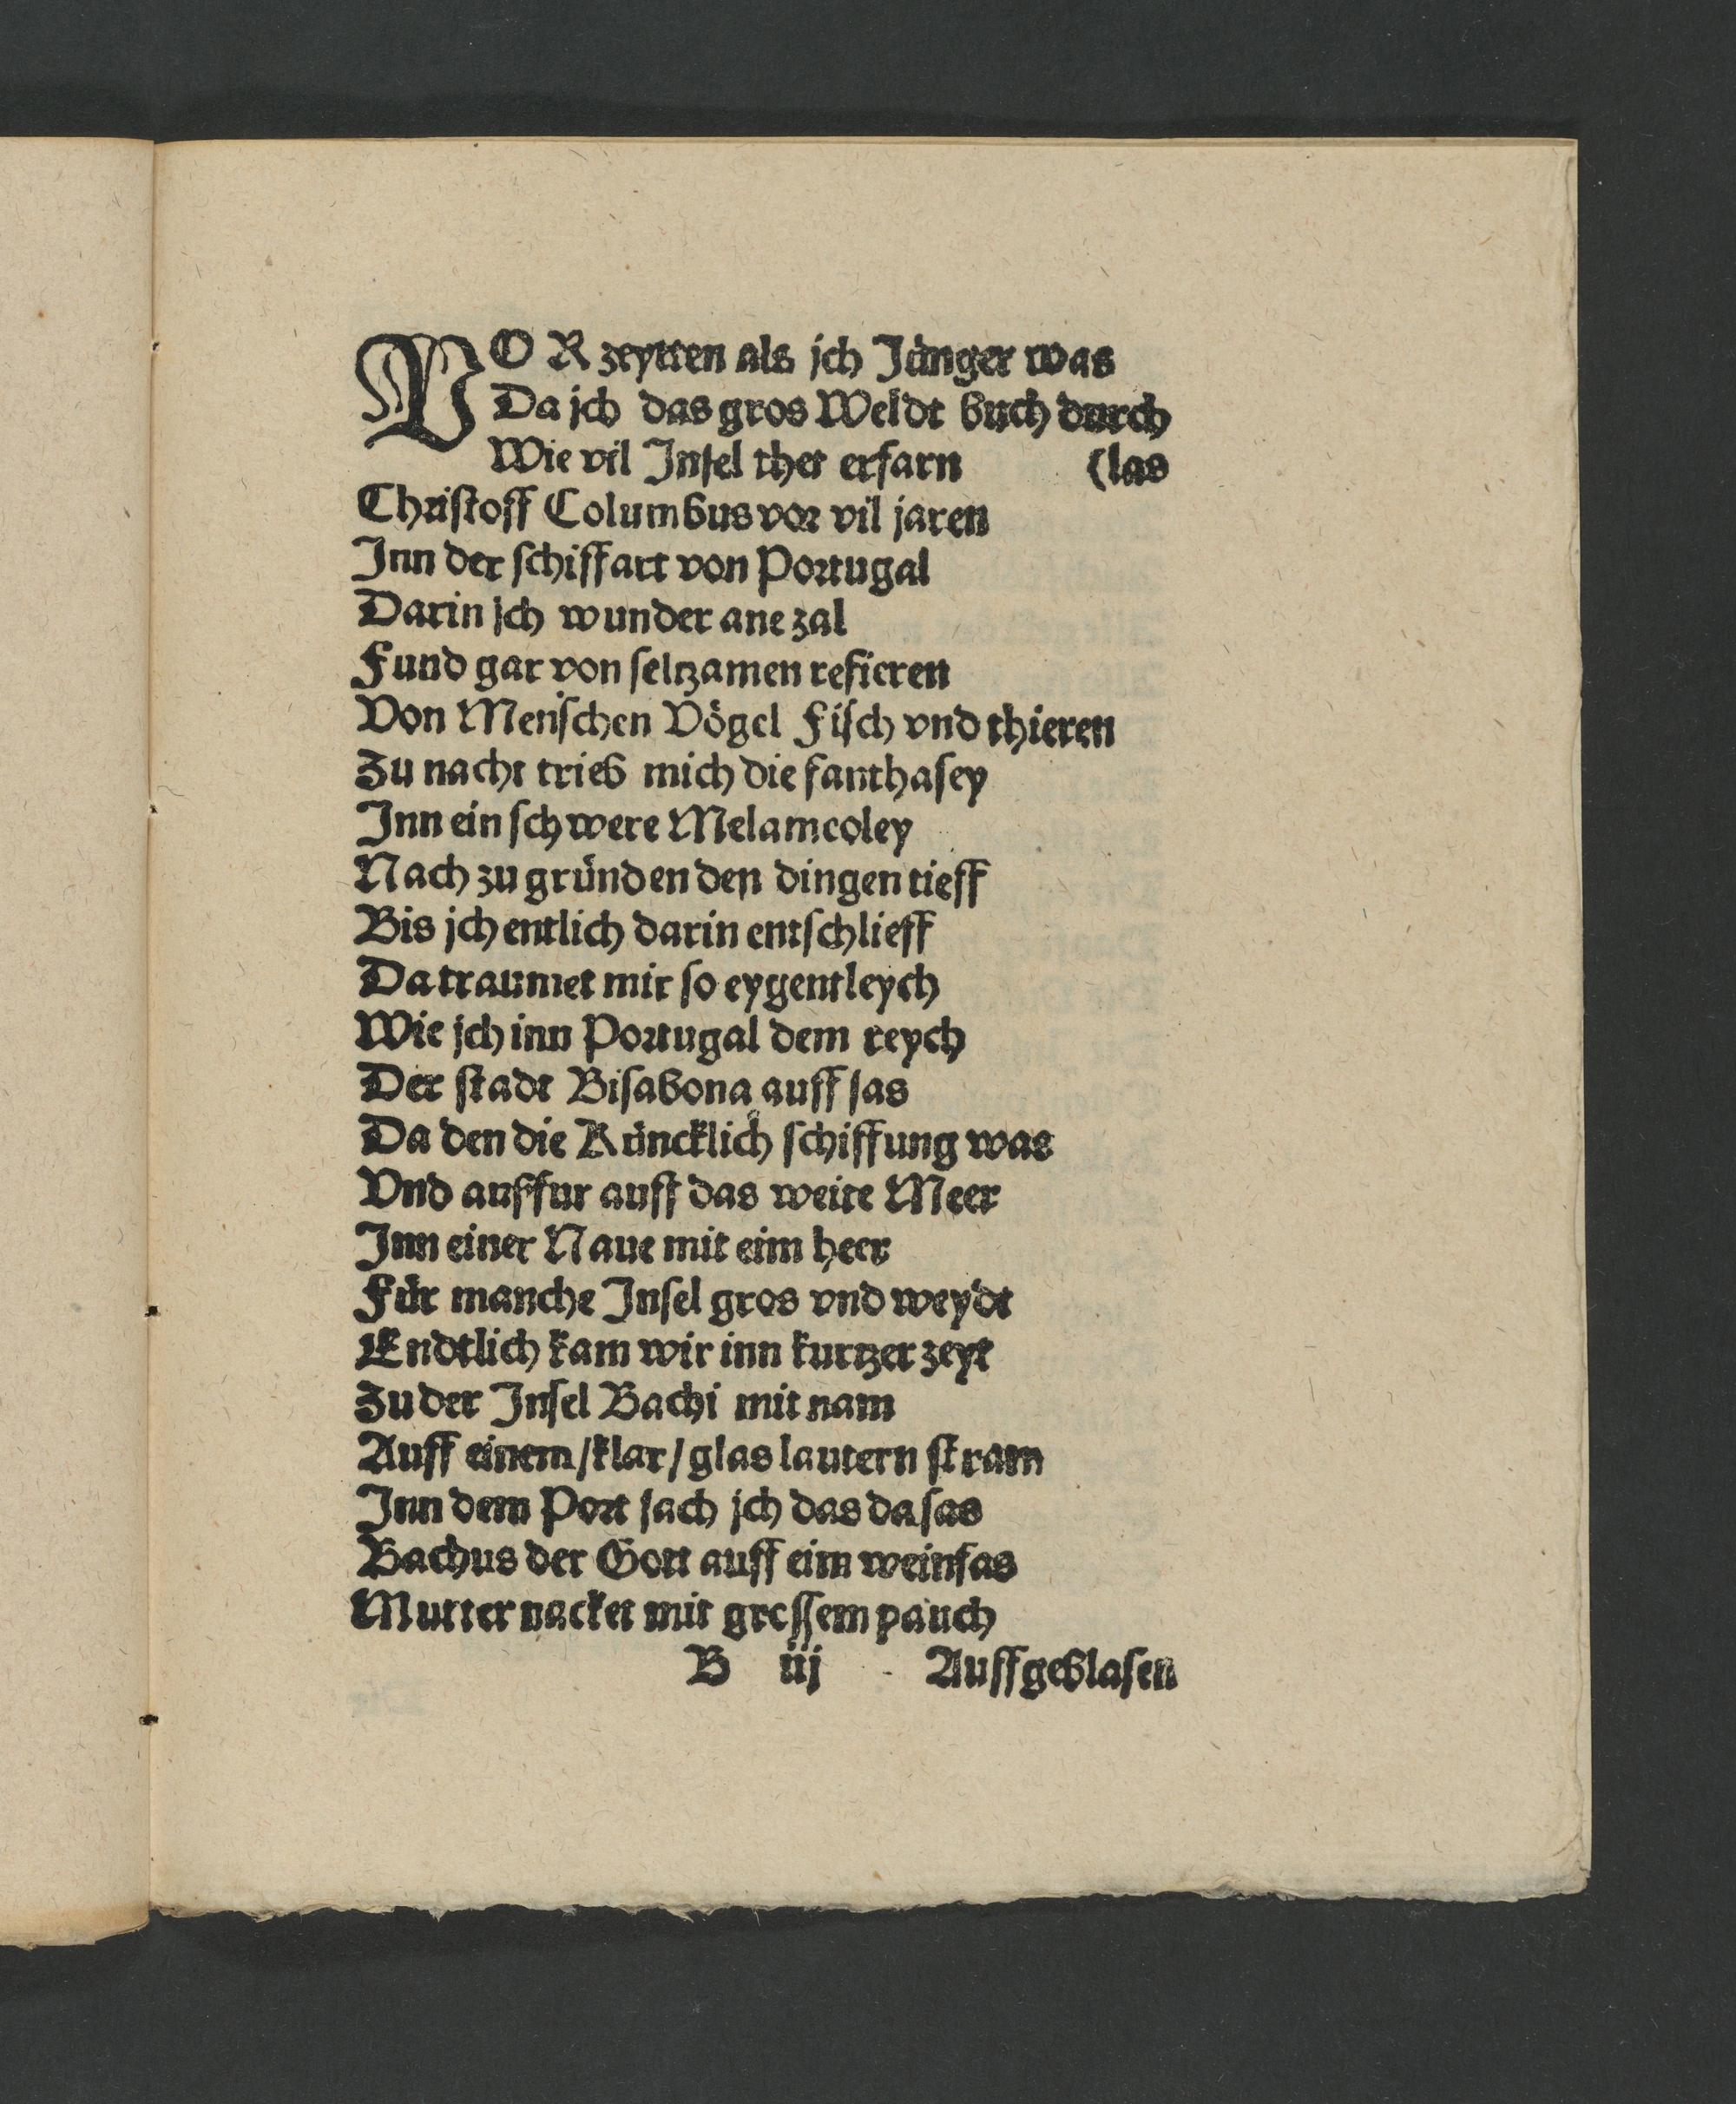 VOR zeytten als jch Jünger was
Da jch das gros Weldt buch durch
Wie vil Jnsel thet erfarn (las
Christoff Columbus vor vil jaren
Jnn der schiffart von Portugal
Darin jch wunder ane zal
Fund gar von seltzamen refieren
Von Menschen Vögel Fisch vnd thieren
Zu nacht trieb mich die fanthasey
Jnn ein schwere Melamcoley
Nach zu gründen den dingen tieff
Bis jch entlich darin entschlieff
Da traumet mir so eygentleych
Wie jch inn Portugal dem reych
Der stadt Bisabona auff sas
Da den die Küncklich schiffung was
Vnd auffur auff das weite Meer
Jnn einer Naue mit eim heer
Für manche Jnsel gros vnd weydt
Endtlich kam wir inn kurtzer zeyt
Zu der Jnsel Bachi mit nam
Auff einem/klar/glas lautern stram
Jnn dem Port sach jch das da sas
Bachus der Gott auff eim weinfas
Mutter nacket mit grossem pauch
B iij Auffgeblasen